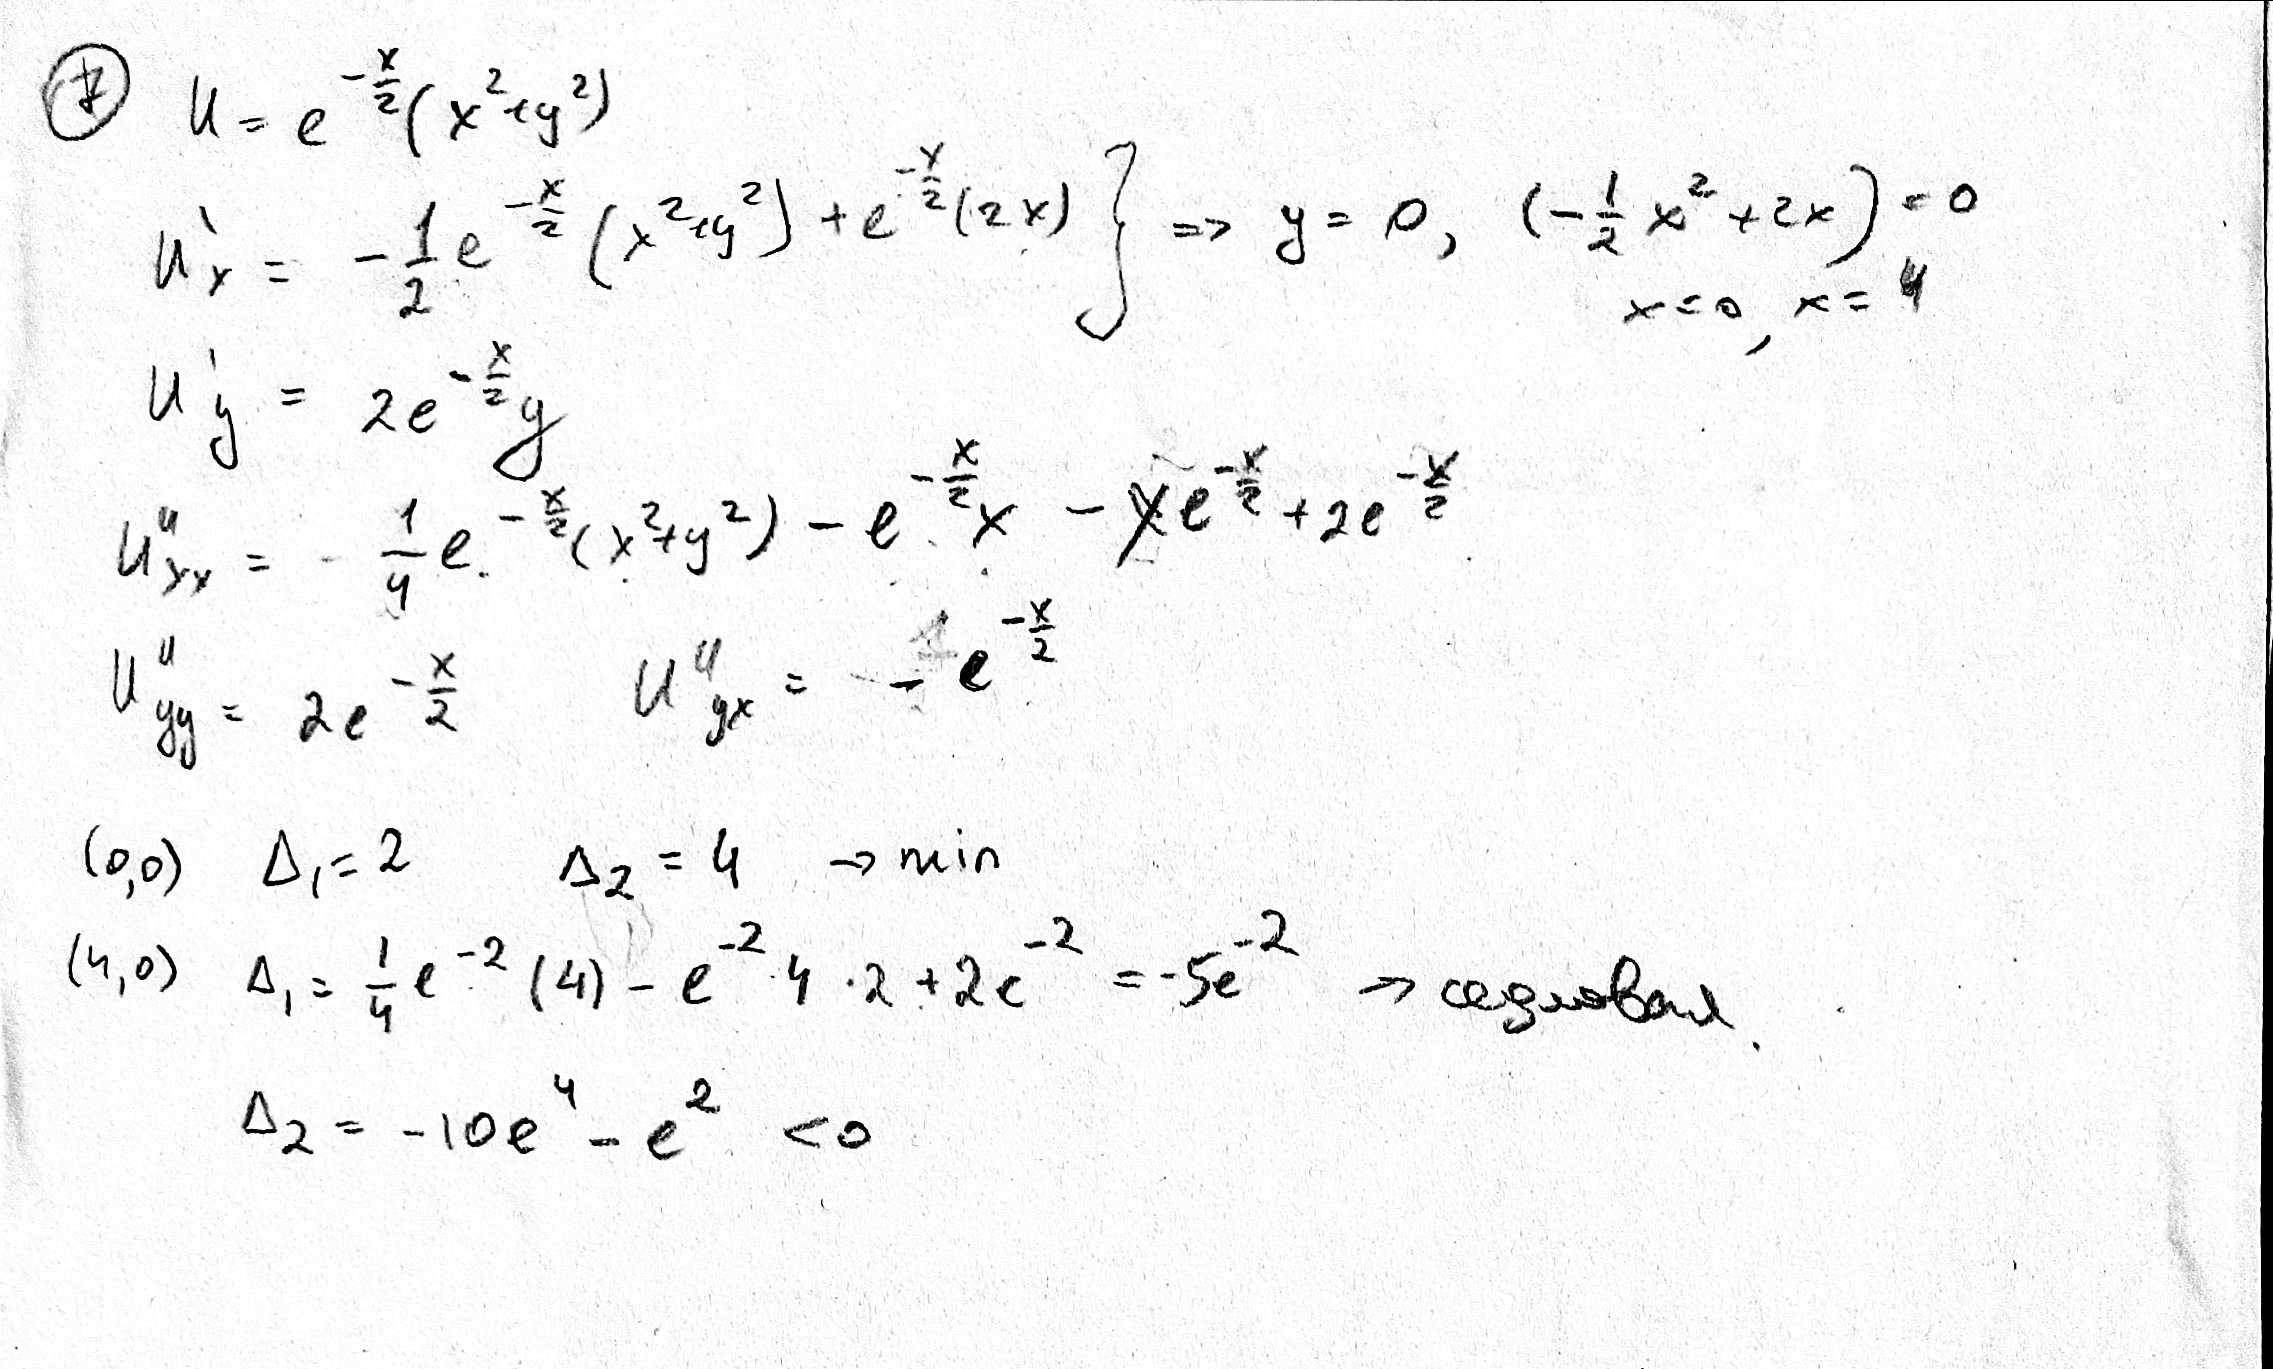 ① U = e^{-x/2}(x²+y²)
U'x = -1/2 e^{-x/2}(x²+y²) + e^{-x/2}(2x) } => y = 0, (-1/2 x² + 2x) = 0
x=0, x=4
U'y = 2e^{-x/2}y
U"xx = 1/4 e^{-x/2}(x²+y²) - e^{-x/2}x - xe^{-x/2} + 2e^{-x/2}
U"yy = 2e^{-x/2} U"yx = -e^{-x/2}
(0,0) Δ₁=2 Δ₂=4 → min
(4,0) Δ₁ = 1/4 e^{-2}(4) - e^{-2}·4·2 + 2e^{-2} = -5e^{-2} → седловая.
Δ₂ = -10e⁴ - e² <0